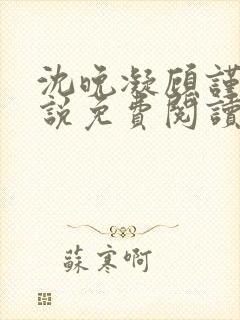 沈晚凝顾謹
說免費閱讀
蘇寒啊